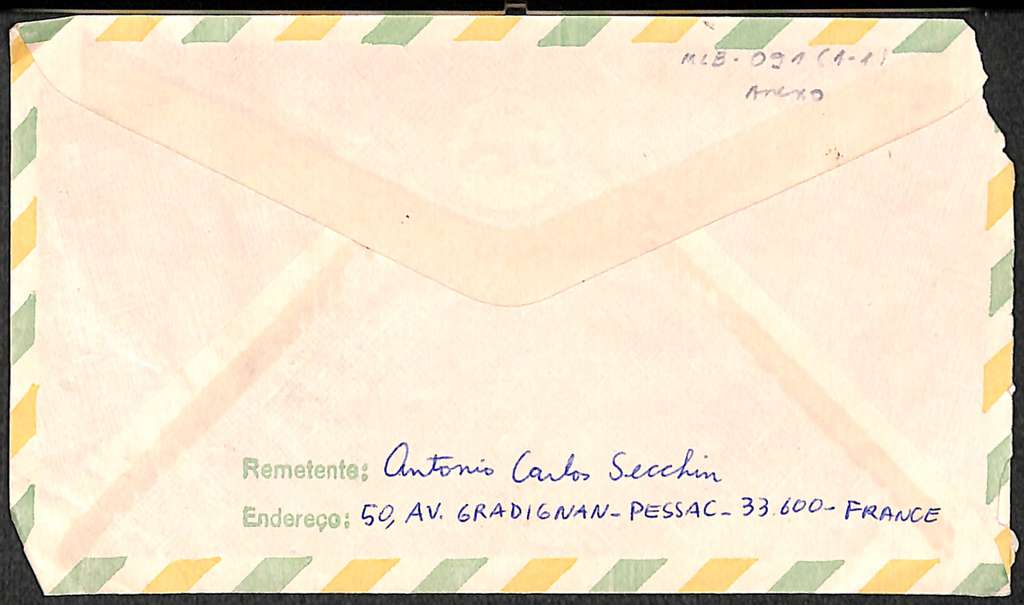 MLB-091 (1-1)
Anexo
Remetente: Antonio Carlos Secchin
Endereço: 50, AV. GRADIGNAN - PESSAC - 33.600 - FRANCE